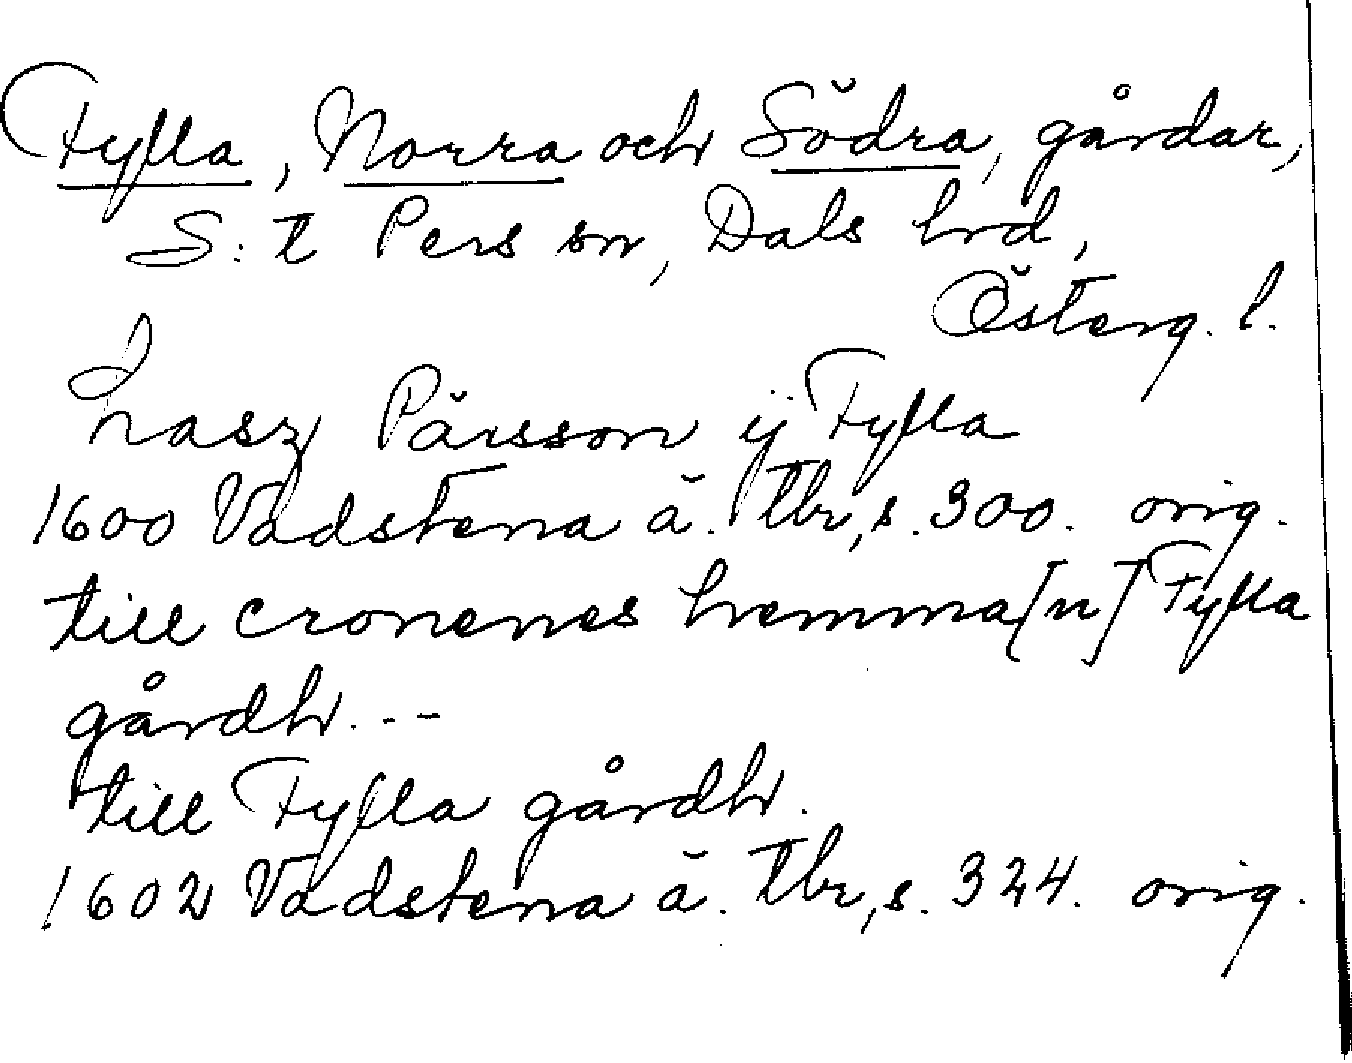 Fylla, Norra och Södra, gårdar,
S:t Pers sn, Dals hd,
Österg. l.
Lasz Pärsson ÿ Fylla
1600 Vadstena ä. tbr, s. 300. orig.
till cronenes hemma[n] Fylla
gårdh. --
till Fylla gårdh.
1602 Vadstena ä. tbr, s. 324. orig.